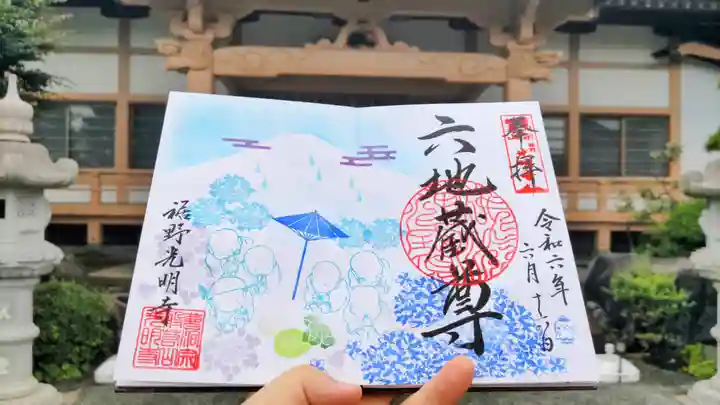 奉拝
令和六年
六月十六日
六地蔵尊
裾野光明寺